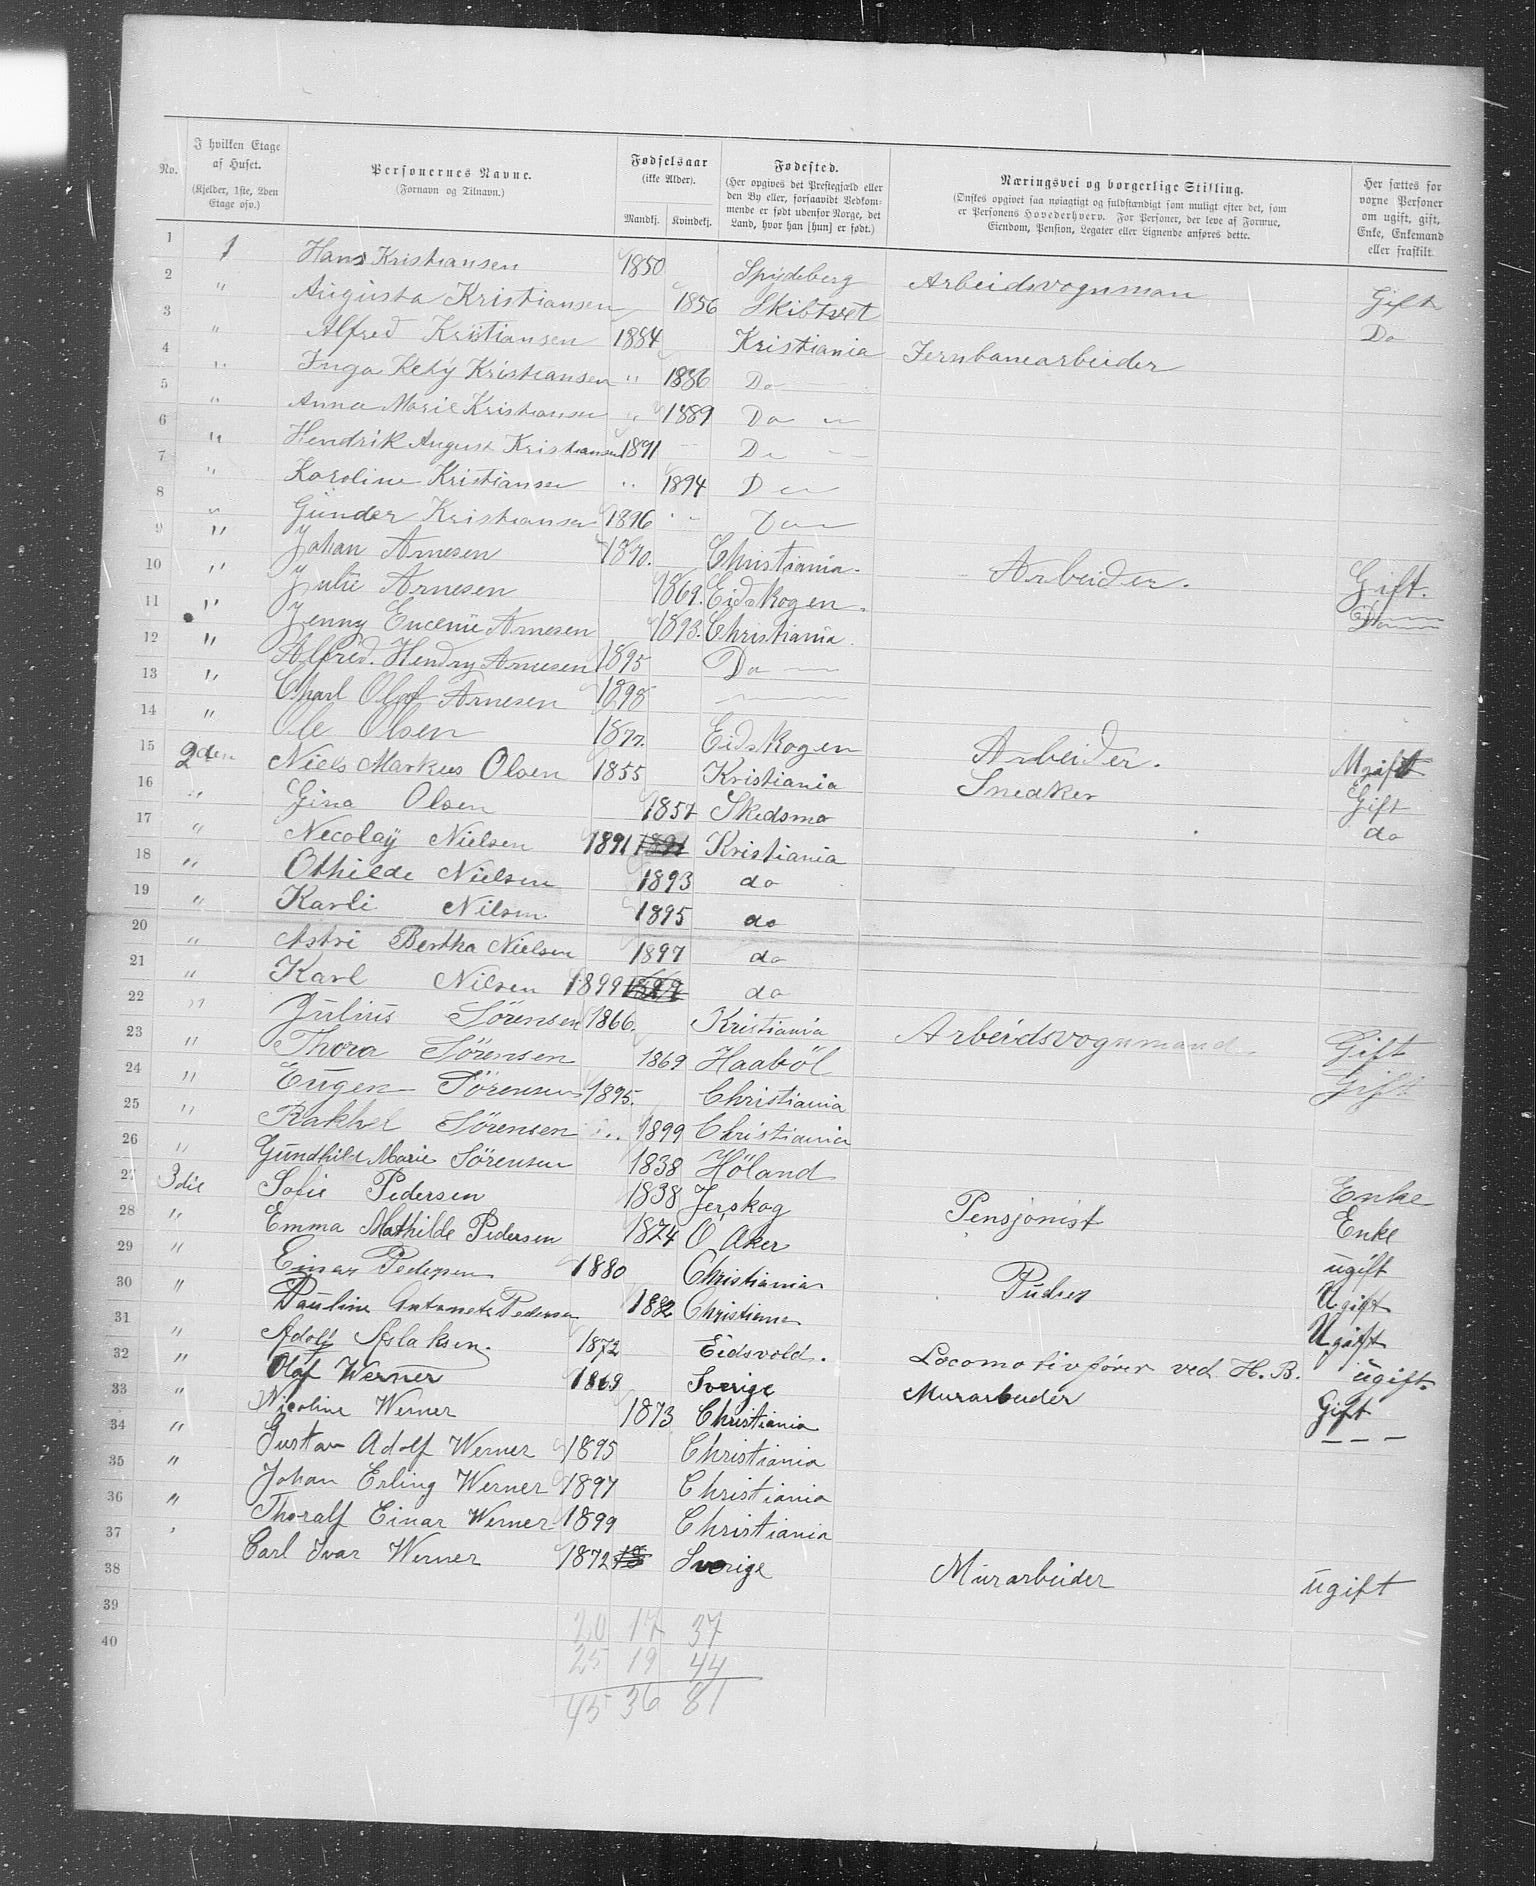 No. | I hvilken Etage af Huset. (Kjelder, 1ste, 2den Etage osv.) | Personernes Navne. (Fornavn og Tilnavn.) | Fødselsaar (ikke Alder). Mandkj. | Kvindekj. | Fødested. (Her opgives det Prestegjæld eller den By eller, forsaavidt Vedkommende er født udenfor Norge, det Land, hvor han [hun] er født.) | Næringsvei og borgerlige Stilling. (Ønskes opgivet saa nøiagtigt og fuldstændigt som muligt efter det, som er Personens Hovederhverv. For Personer, der leve af Formue, Eiendom, Pension, Legater eller Lignende anføres dette. | Her sættes for voxne Personer om ugift, gift, Enke, Enkemand eller fraskilt.
1 | 1 | Hans Kristiansen | 1850 | | Spydeberg | Arbeidsvognman | Gift
2 | " | Augusta Kristiansen | | 1856 | Skibtvet | | Do
3 | " | Alfred Kristiansen | 1884 | | Kristiania | Jernbanearbeider
4 | " | Inga Kety Kristiansen | " | 1886 | Do
5 | " | Anna Marie Kristiansen | " | 1889 | Do "
6 | " | Hendrik August Kristiansen | 1891 | | Do
7 | " | Karoline Kristiansen | " | 1894 | D
8 | " | Gunder Kristiansen | 1896 | | Do
9 | " | Johan Arnesen | 1870. | | Christiania. | Arbeider. | Gift.
10 | " | Julie Arnesen | | 1869. | Eidskogen. | | Do
11 | " | Jenny Eucenie Arnesen | | 1893. | Christiania.
12 | " | Alfred. Hendry Arnesen | 1895 | | Do
13 | " | Charl Olaf Arnesen | 1898
14 | " | Ole Olsen | 1877. | | Eidskogen | Arbeider. | Ugift
15 | 2den | Niels Markus Olsen | 1855 | | Kristiania | Snedker | Gift
16 | " | Gina Olsen | | 1857 | Skedsmo | | do
17 | " | Necolaÿ Nielsen | 1891 | | Kristiania
18 | " | Othilde Nielsen | | 1893 | do
19 | " | Karli Nilsen | | 1895 | do
20 | " | Astri Bertha Nielsen | | 1897 | do
21 | " | Karl Nilsen | 1899 | | do
22 | " | Julius Sörensen | 1866. | | Kristiania | Arbeidsvognmand. | Gift
23 | " | Thora Sörensen | | 1869 | Haaböl | | Gift
24 | " | Eugen Sörensen | 1895. | | Christiania
25 | " | Rakhel Sörensen | " | 1899 | Christiania
26 | " | Gundhild Marie Sörensen | | 1838 | Höland | | Enke
27 | 3die | Sofie Pedersen | | 1838 | Jerskog | Pensjonist | Enke
28 | " | Emma Mathilde Pedersen | | 1874 | Ö, Aker | | ugift
29 | " | Einar Pedersen | 1880 | | Christiania | Pudser | Ugift
30 | " | Pauline Antonete Pedersen | | 1882 | Christiania | | Ugift
31 | " | Adolf Aslaksen. | 1872 | | Eidsvold. | Locomotivfører ved H. B. | ugift.
32 | " | Olaf Werner | 1869 | | Sverige | Murarbeider | Gift
33 | " | Nicoline Werner | | 1873 | Christiania | | — — —
34 | " | Gustav Adolf Werner | 1895 | | Christiania
35 | " | Johan Erling Werner | 1897 | | Christiania
36 | " | Thoralf Einar Werner | 1899 | | Christiania
37 | ' | Carl Ivar Werner | 1872 | | Sverige | Murarbeider | ugift
38
39 | 20 | 17 | 37
40 | 25 | 19 | 44
45 | 36 | 81